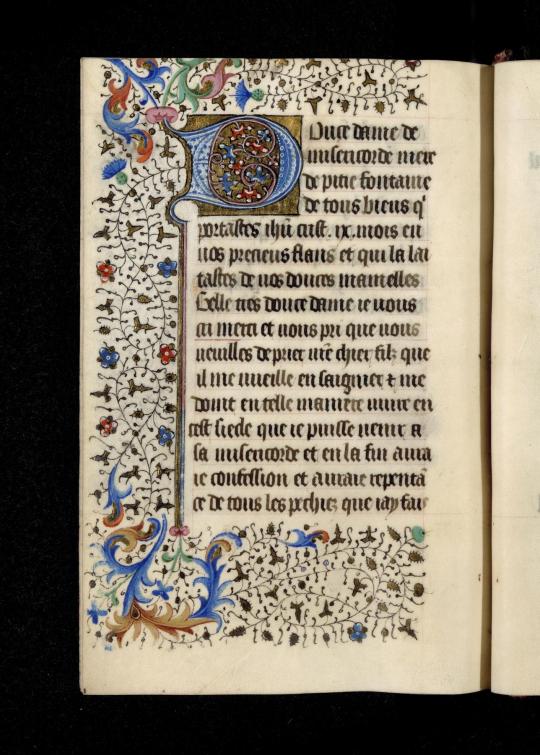 Duce dame de
misericorde mere
de pitie fontaine
de tous biens q'
portastes ihu crist . ix. mois en
vos precieus flans et qui la lai
tastes de vos douces mamelles
Celle tres douce dame ie vous
cri merci et vous pri que vous
vueilles de prier vre chier filz que
il me vueille en saignier ⁊ me
doint en telle maniere vivre en
cest siecle que ie puisse venir a
sa misericorde et en la fin avra
ie confession et avraie repenta
ce de tous les pechiez que iay fais